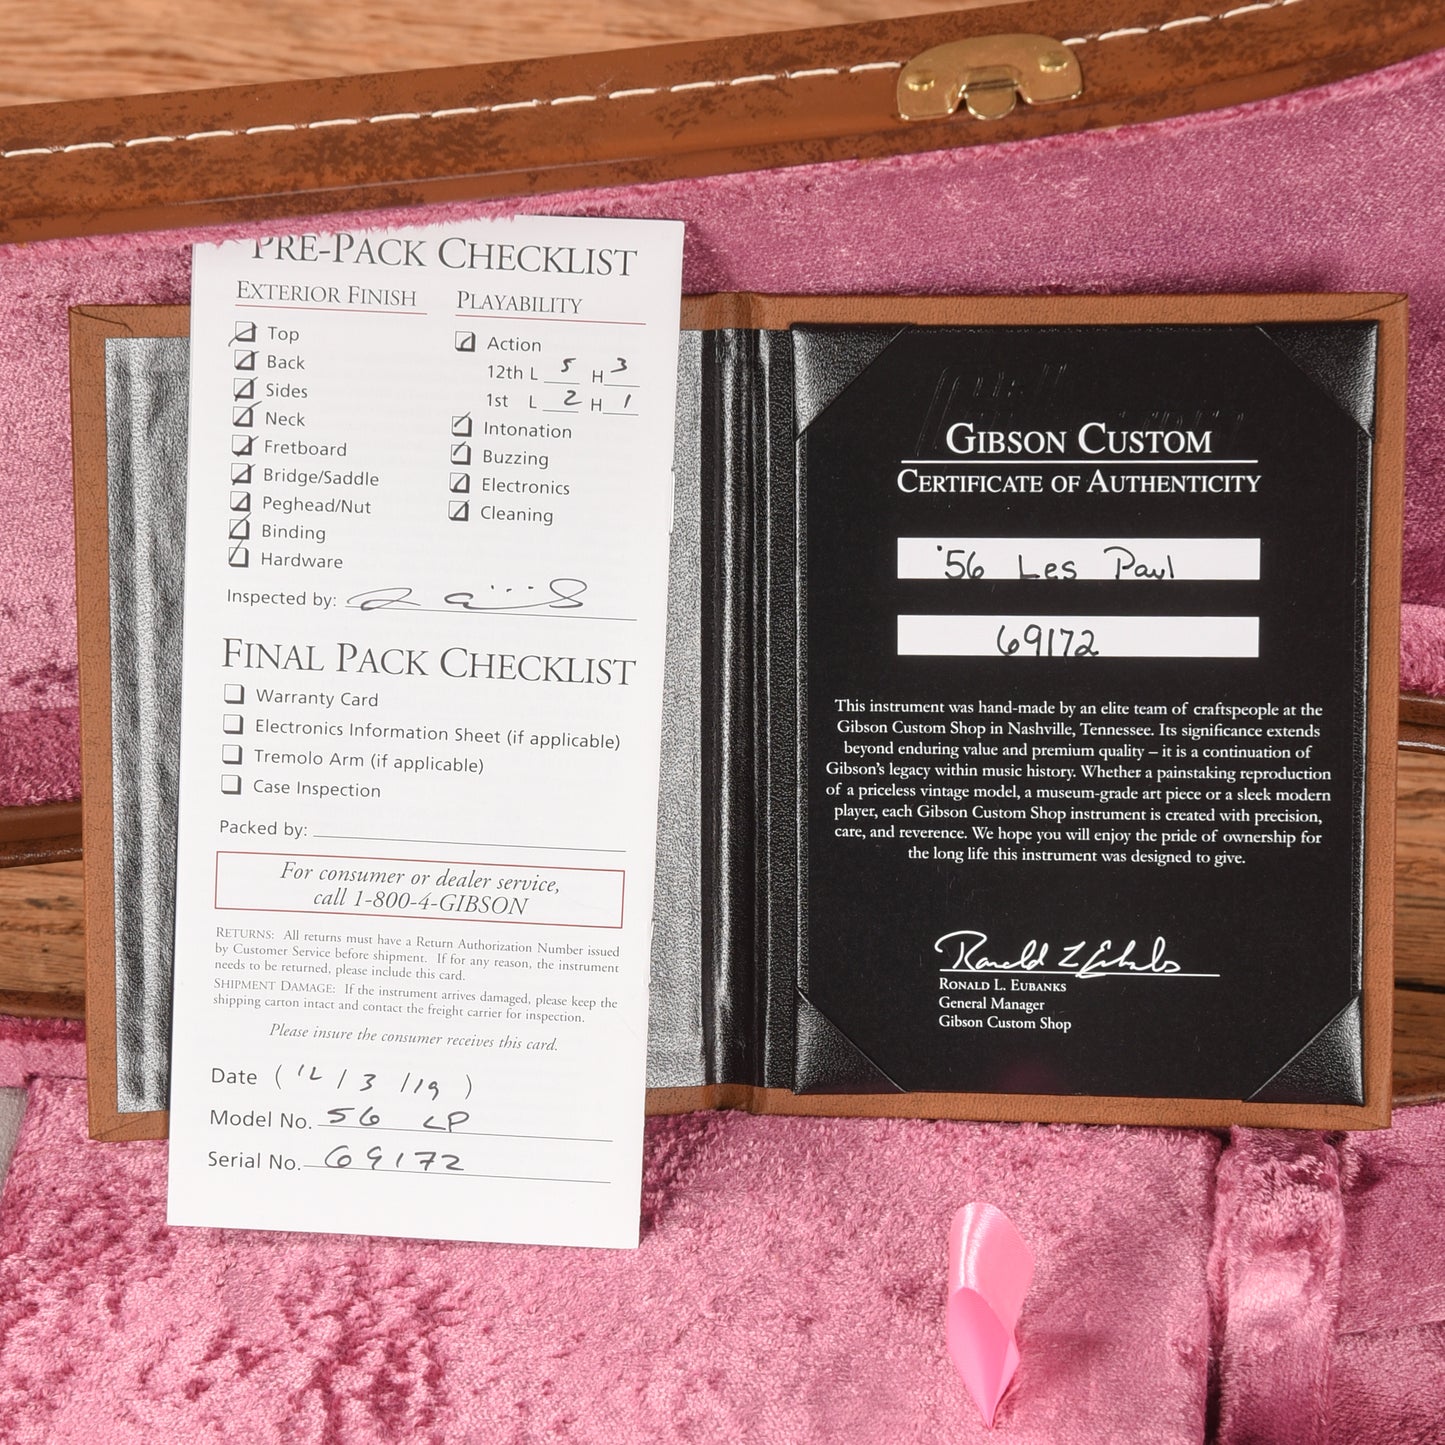 PRE-PACK CHECKLIST
EXTERIOR FINISH
Top
Back
Sides
Neck
Fretboard
Bridge/Saddle
Peghead/Nut
Binding
Hardware
PLAYABILITY
Action
12th L 5 H 3
1st L 2 H 1
Intonation
Buzzing
Electronics
Cleaning
Inspected by:
FINAL PACK CHECKLIST
Warranty Card
Electronics Information Sheet (if applicable)
Tremolo Arm (if applicable)
Case Inspection
Packed by:
For consumer or dealer service,
call 1-800-4-GIBSON
RETURNS: All returns must have a Return Authorization Number issued
by Customer Service before shipment. If for any reason, the instrument
needs to be returned, please include this card.
SHIPMENT DAMAGE: If the instrument arrives damaged, please keep the
shipping carton intact and contact the freight carrier for inspection.
Please insure the consumer receives this card.
Date (12/3/19)
Model No. 56 LP
Serial No. 69172
GIBSON CUSTOM
CERTIFICATE OF AUTHENTICITY
'56 Les Paul
69172
This instrument was hand-made by an elite team of craftspeople at the
Gibson Custom Shop in Nashville, Tennessee. Its significance extends
beyond enduring value and premium quality – it is a continuation of
Gibson's legacy within music history. Whether a painstaking reproduction
of a priceless vintage model, a museum-grade art piece or a sleek modern
player, each Gibson Custom Shop instrument is created with precision,
care, and reverence. We hope you will enjoy the pride of ownership for
the long life this instrument was designed to give.
Ronald L Eubanks
RONALD L. EUBANKS
General Manager
Gibson Custom Shop